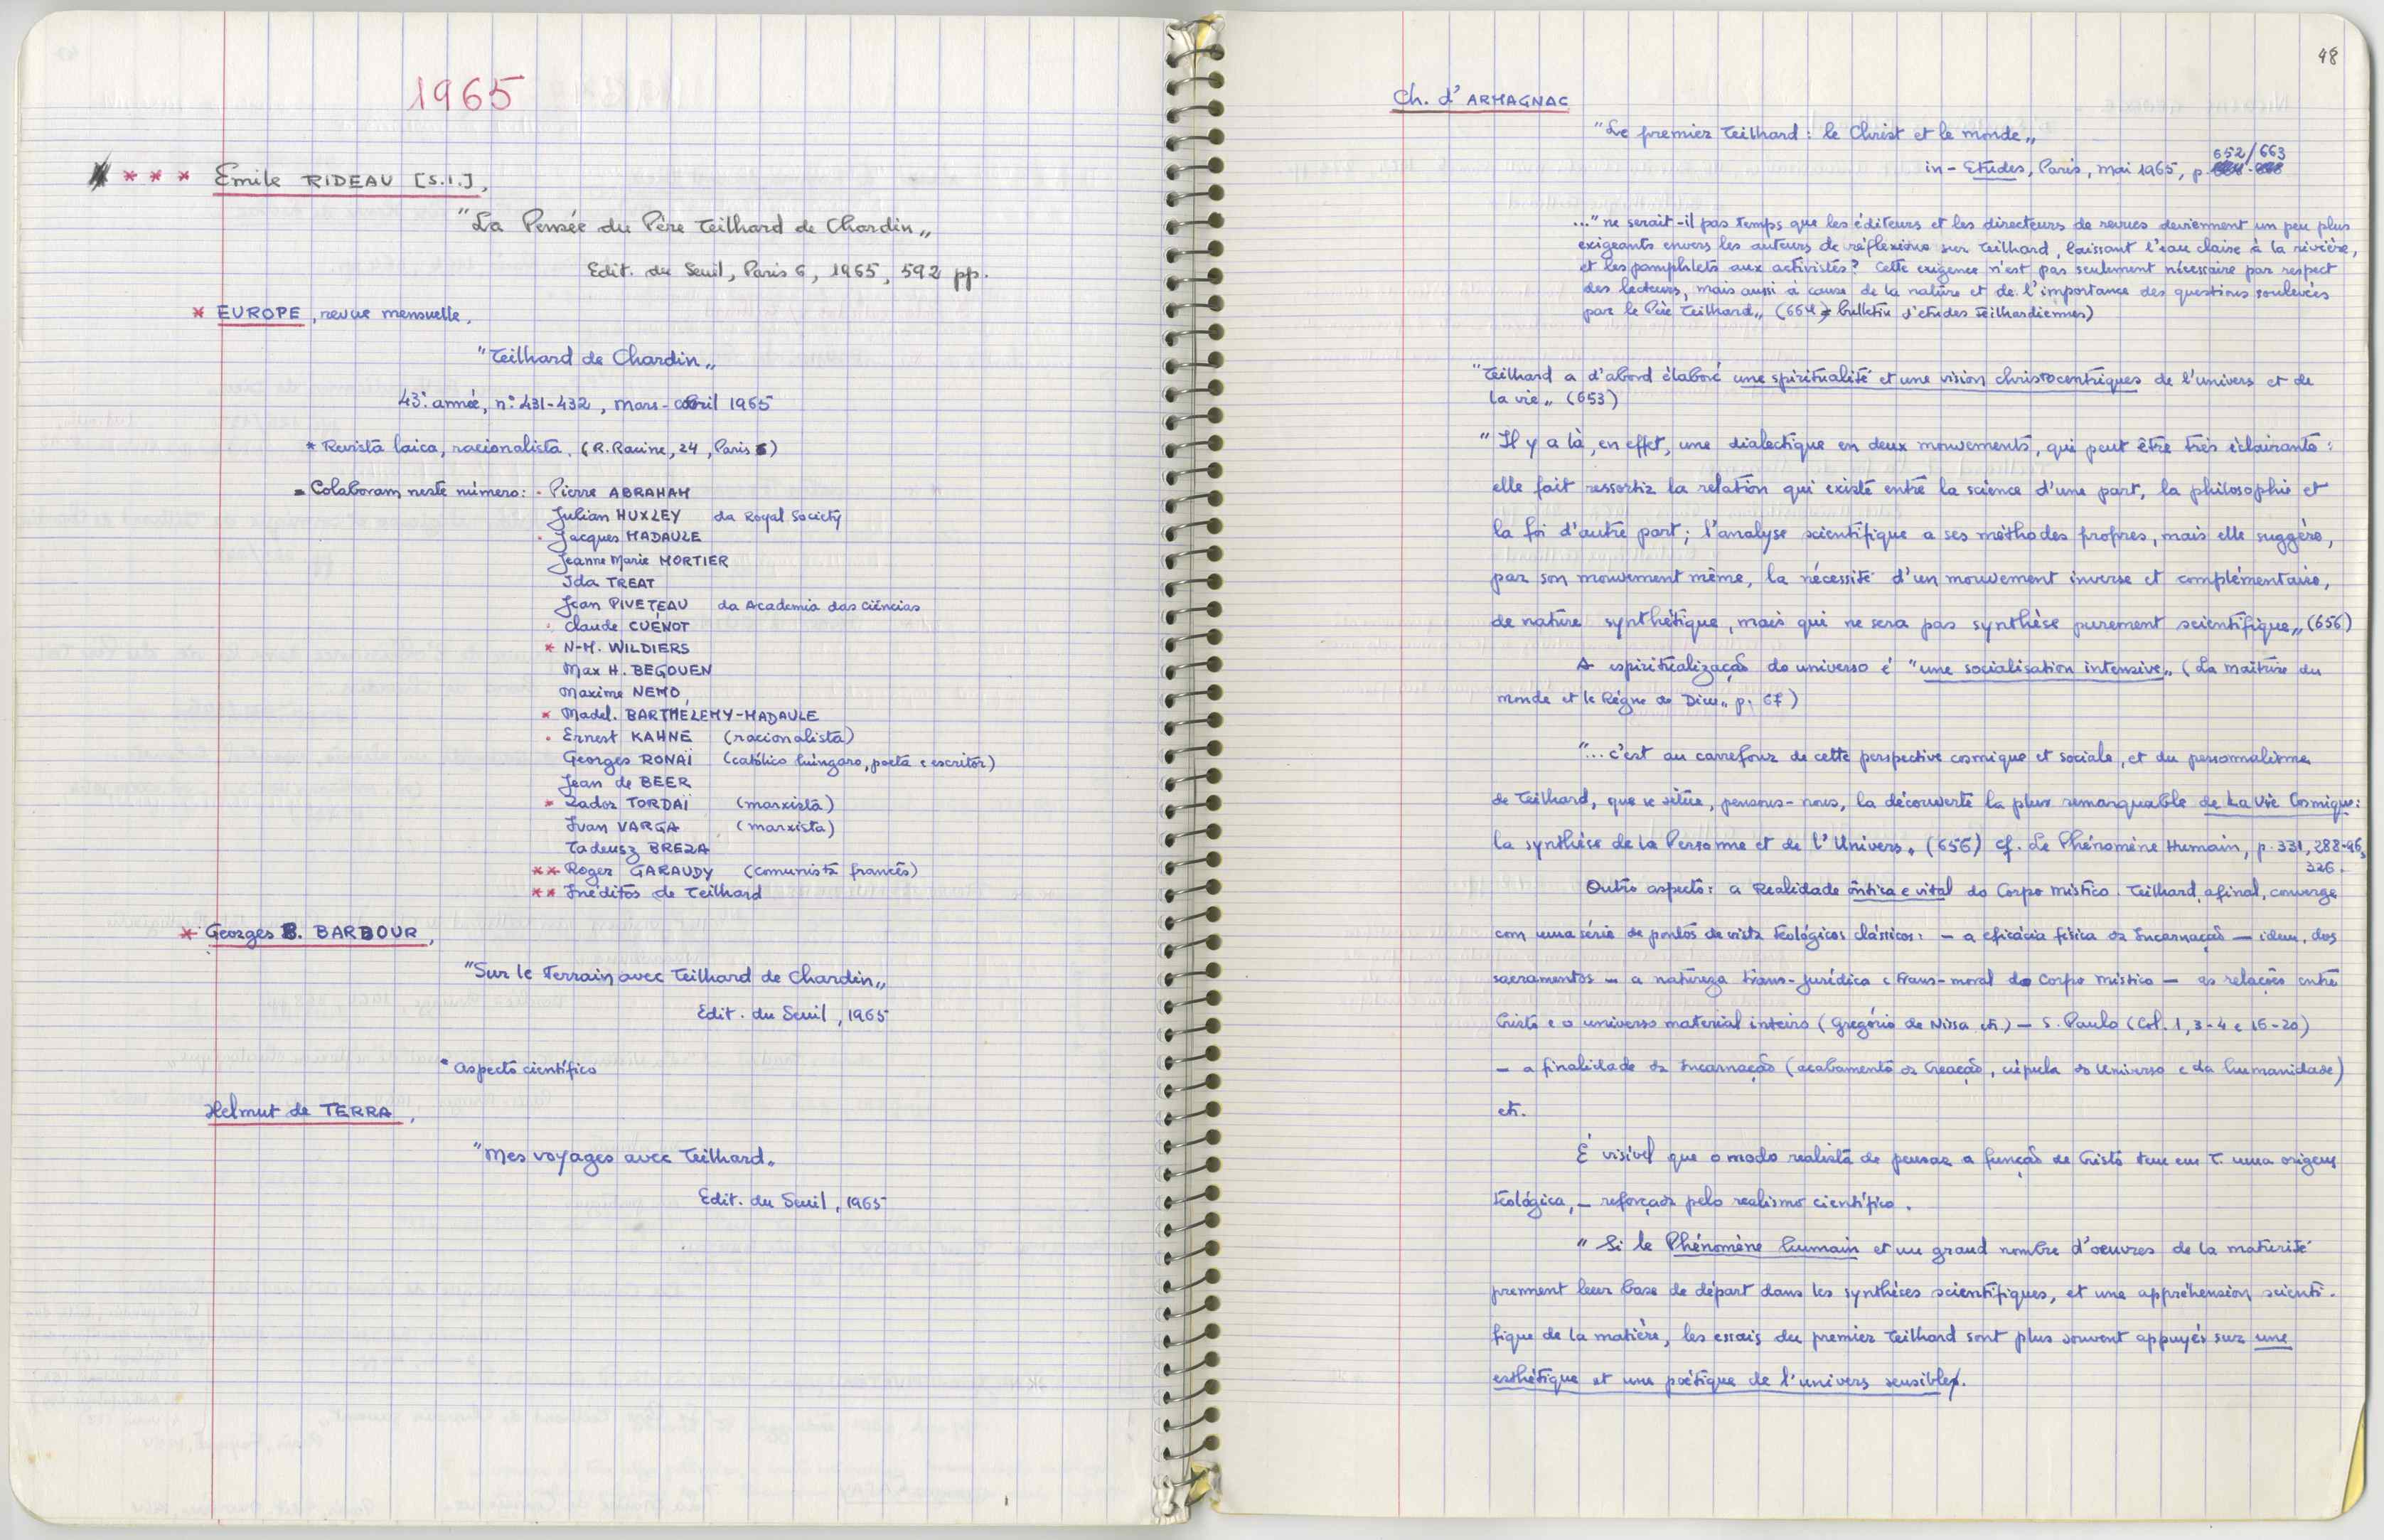 1965
* * * Emile RIDEAU [S.I.],
"La Pensée du Père Teilhard de Chardin„
Edit. du Seuil, Paris 6, 1965, 592 pp.
* EUROPE, revue mensuelle,
"Teilhard de Chardin„
43ᵉ année, nº 431-432, Mars-Abril 1965
* Revista laica, racionalista. (R. Racine, 24, Paris 6)
- Colaboram neste número: · Pierre ABRAHAM
Julian HUXLEY da Royal Society
· Jacques MADAULE
Jeanne Marie MORTIER
Ida TREAT
Jean PIVETEAU da Academia das Ciências
· Claude CUÉNOT
* N-M. WILDIERS
Max H. BEGOUEN
Maxime NEMO
* Madel. BARTHÉLEMY-MADAULE
· Ernest KAHNE (racionalista)
Georges RONAÏ (católico húngaro, poeta e escritor)
Jean de BEER
* Zador TORDAÏ (marxista)
Ivan VARGA (marxista)
Tadeusz BREZA
** Roger GARAUDY (comunista francês)
** Inéditos de Teilhard
* Georges B. BARBOUR,
"Sur le Terrain avec Teilhard de Chardin„
Edit. du Seuil, 1965
* Aspecto científico
Helmut de TERRA,
"Mes voyages avec Teilhard„
Edit. du Seuil, 1965
48
Ch. d'ARMAGNAC
"Le premier Teilhard: le Christ et le monde„
652/663
in - Etudes, Paris, mai 1965, p.
..." ne serait-il pas temps que les éditeurs et les directeurs de revues deviennent un peu plus
exigeants envers les auteurs de réflexions sur Teilhard, laissant l'eau claire à la rivière,
et les pamphlets aux activistes? Cette exigence n'est pas seulement nécessaire par respect
des lecteurs, mais aussi à cause de la nature et de l'importance des questions soulevées
par le Père Teilhard„ (664 bulletin d'études teilhardiennes)
"Teilhard a d'abord élaboré une spiritualité et une vision christocentriques de l'univers et de
la vie„ (653)
"Il y a là, en effet, une dialectique en deux mouvements, qui peut être très éclairante:
elle fait ressortir la relation qui existe entre la science d'une part, la philosophie et
la foi d'autre part; l'analyse scientifique a ses méthodes propres, mais elle suggère,
par son mouvement même, la nécessité d'un mouvement inverse et complémentaire,
de nature synthétique, mais qui ne sera pas synthèse purement scientifique„ (656)
A espiritualização do universo é "une socialisation intensive„ (La maîtrise du
monde et le Règne de Dieu„ p. 67)
"... c'est au carrefour de cette perspective cosmique et sociale, et du personnalisme
de Teilhard, que se situe, pensons-nous, la découverte la plus remarquable de La Vie Cosmique:
la synthèse de la Personne et de l'Univers„ (656) cf. Le Phénomène Humain, p. 331, 288-96,
326.
Outro aspecto: a Realidade ôntica e vital do Corpo Místico. Teilhard, afinal, converge
com uma série de pontos de vista teológicos clássicos: — a eficácia física da Incarnação — idem, dos
sacramentos — a natureza trans-jurídica e trans-moral do Corpo Místico — as relações entre
Cristo e o universo material inteiro (Gregório de Nissa, etc.) — S. Paulo (Col. 1, 3-4 e 16-20)
— a finalidade da Incarnação (acabamento da Creação, cúpula do Universo e da humanidade)
etc.
É visível que o modo realista de pensar a função de Cristo tem em T. uma origem
teológica, — reforçada pelo realismo científico.
"Si le Phénomène humain et un grand nombre d'oeuvres de la maturité
prennent leur base de départ dans les synthèses scientifiques, et une appréhension scienti-
fique de la matière, les essais du premier Teilhard sont plus souvent appuyés sur une
esthétique et une poétique de l'univers sensible„.